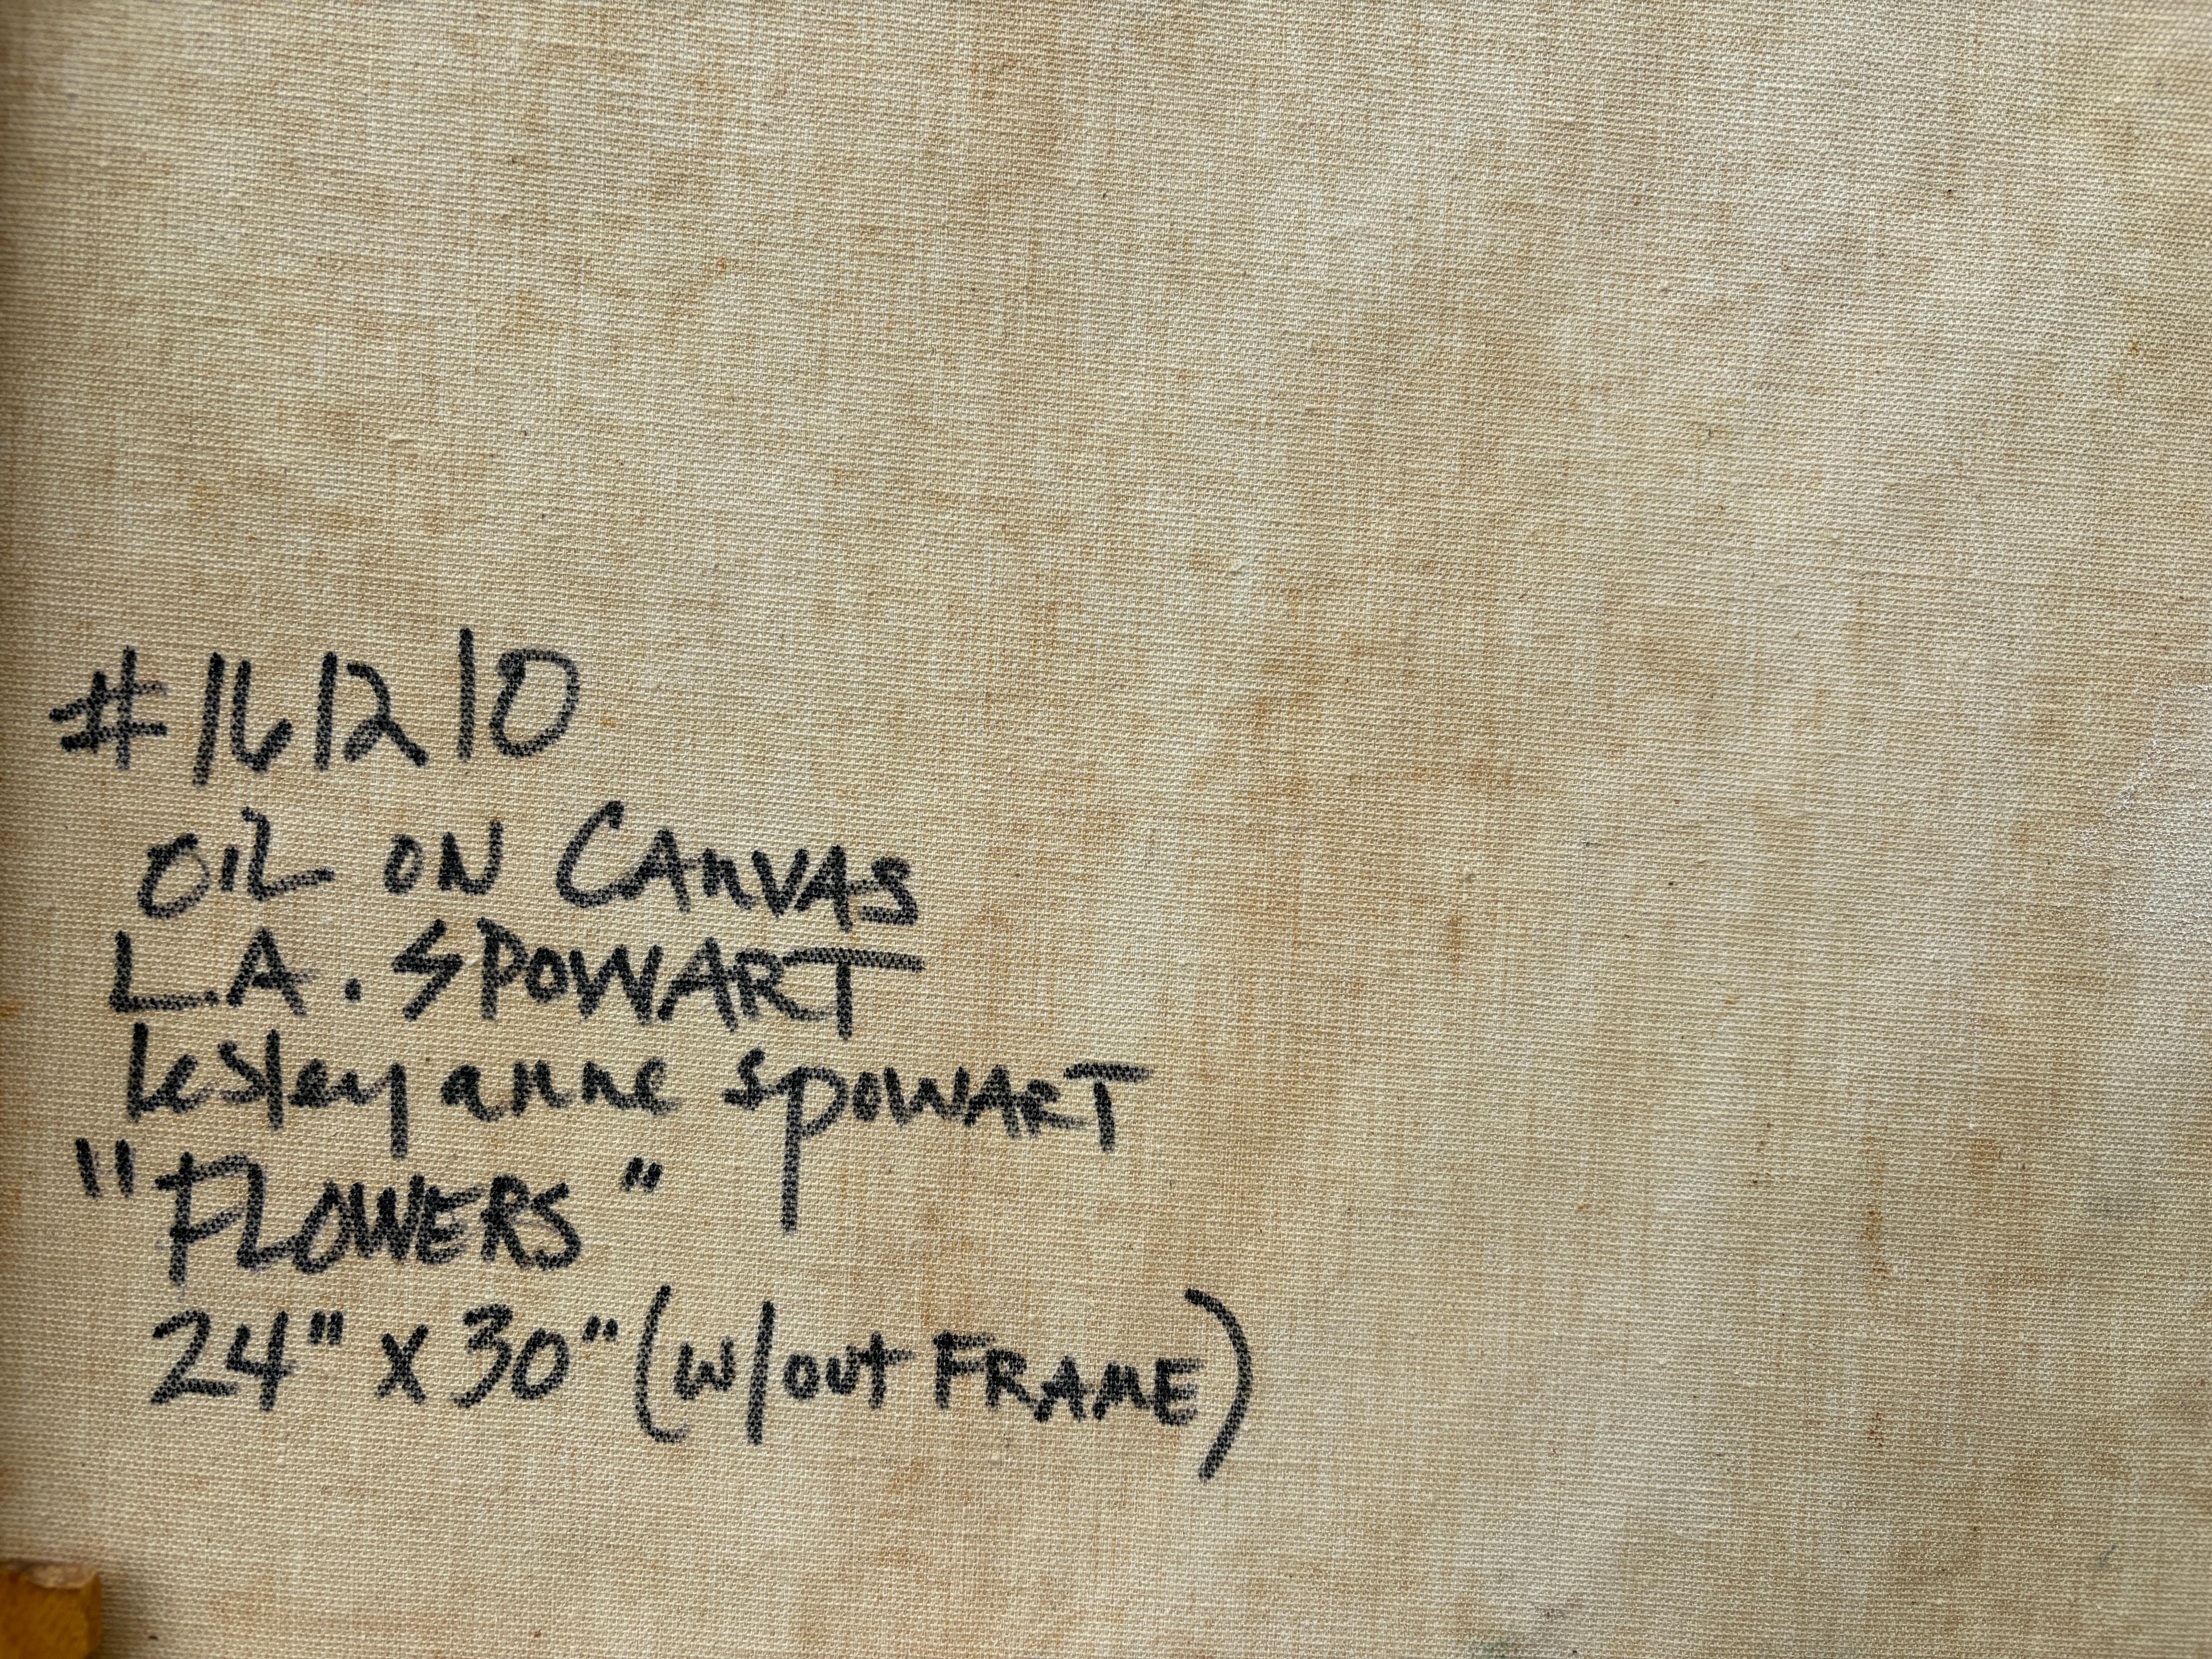 #161210
OIL ON CANVAS
L.A. SPOWART
lesley anne spowART
"FLOWERS"
24" x 30" (w/out FRAME)